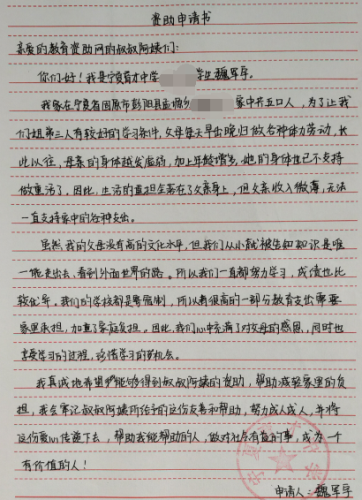 资助申请书
亲爱的教育资助网的叔叔阿姨们:
你们好!我是宁夏育才中学 学生魏军孚。
我家在宁夏省固原市彭阳县孟塬乡 家中共五口人,为了让我
们姐弟三人有较好的学习条件,父母每天早出晚归做各种体力劳动,长
此以往,母亲的身体越发虚弱,加上年龄增多,她的身体也已不支持
做重活了,因此,生活的重担全落在了父亲身上,但父亲收入微薄,无法
一直支持家中的各种支出。
虽然我的父母没有高的文化水平,但我们从小就被告知知识是唯
一能走出去,看到外面世界的路。所以我们一直都努力学习,成绩也比
较优异。我们的学校都是寄宿制,所以有很高的一部分教育支出需要
家里承担,加重了家庭负担。因此,我们心中充满了对父母的感恩,同时也
享受学习的过程,珍惜学习的好机会。
我真诚地希望能够得到叔叔阿姨的资助,帮助减轻家里的负
担,我会牢记叔叔阿姨所给予的这份友善和帮助,努力成人成人,并将
这份爱心传递下去,帮助我能帮助的人,做对社会有益的事,成为一个
有价值的人!
申请人:魏军孚